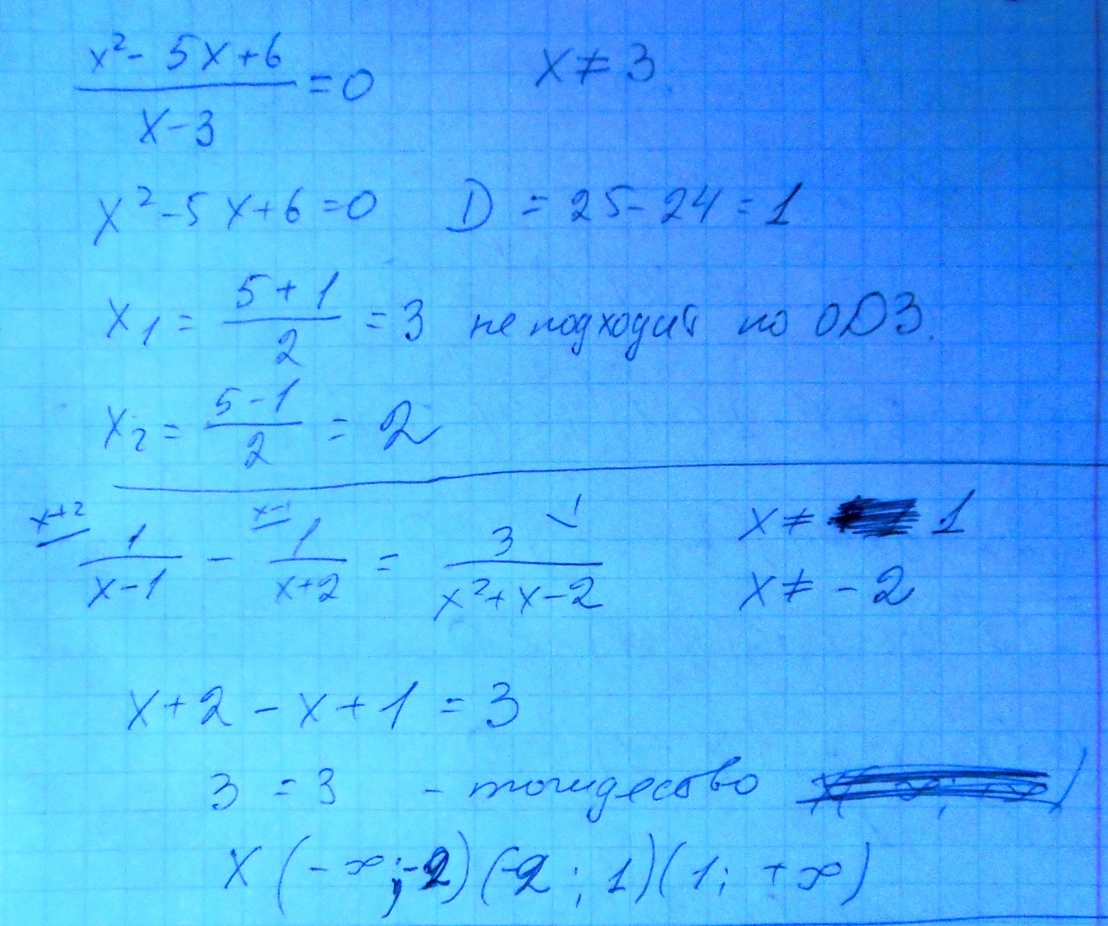 x² - 5x + 6 / x - 3 = 0 x ≠ 3
x² - 5x + 6 = 0 D = 25 - 24 = 1
x₁ = 5 + 1 / 2 = 3 не подходит по ОДЗ.
x₂ = 5 - 1 / 2 = 2
x+2 x-1 1
1 / x - 1 - 1 / x + 2 = 3 / x² + x - 2 x ≠ 1
x ≠ - 2
x + 2 - x + 1 = 3
3 = 3 - тождество
x (- ∞; -2) (-2; 1) (1; + ∞)